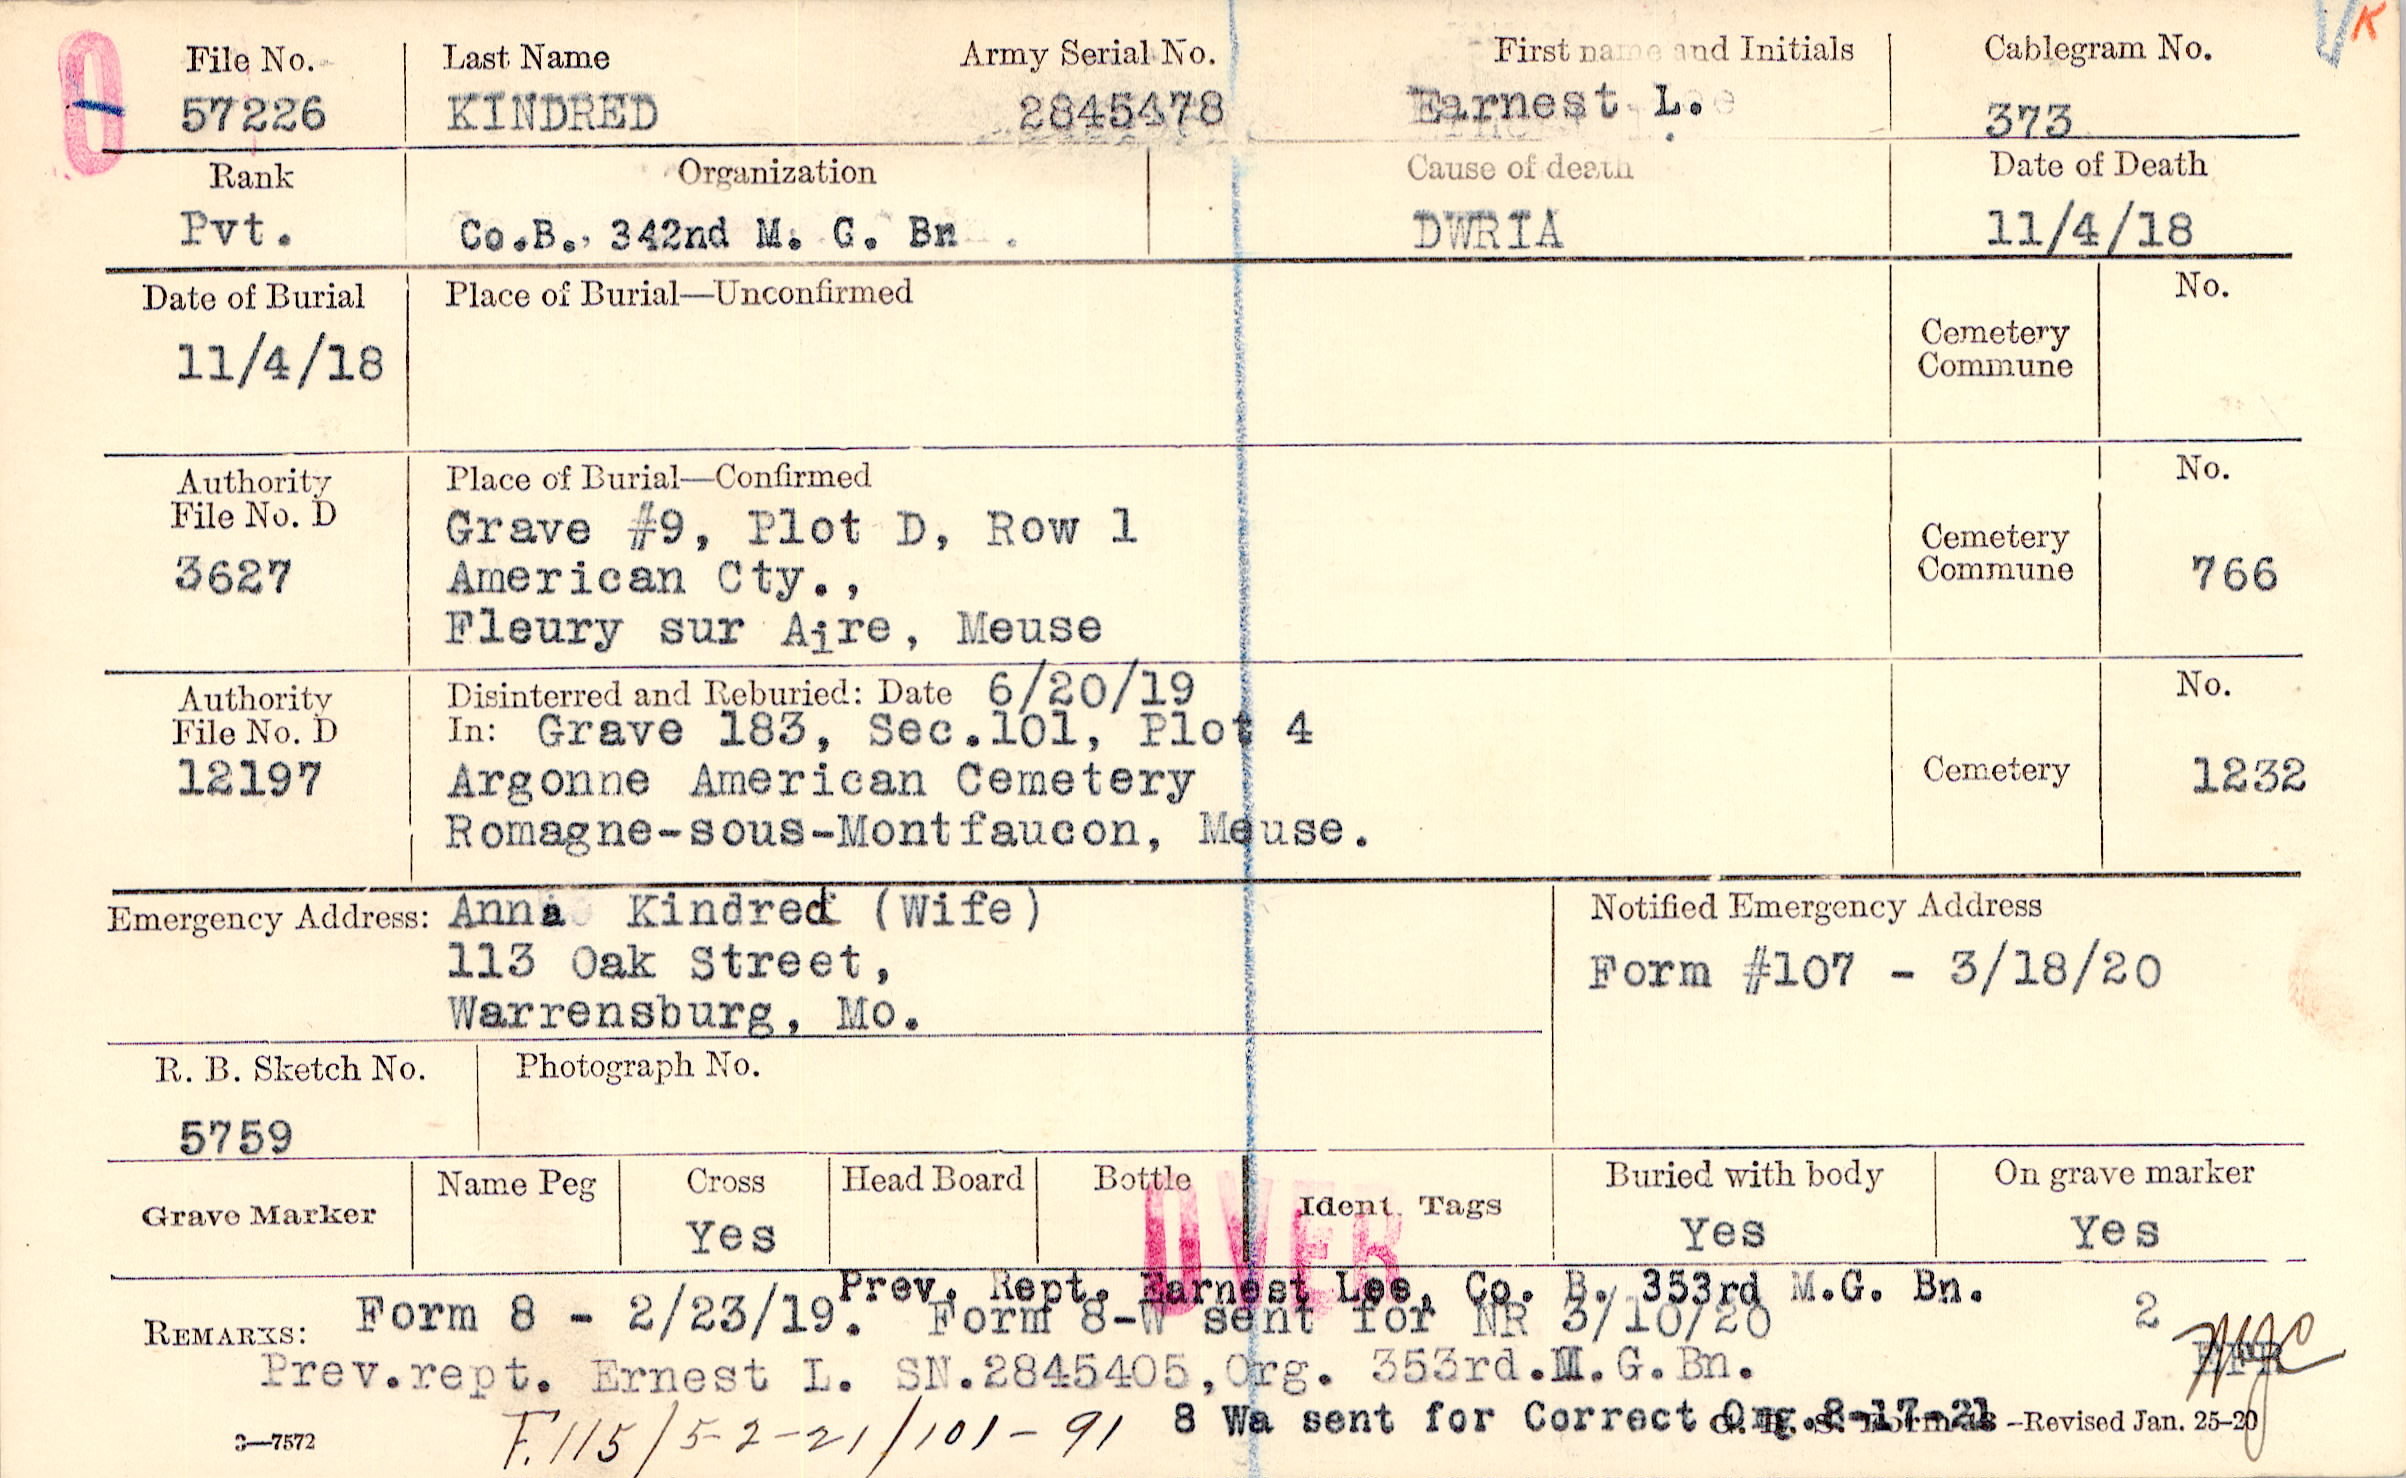 File No. Last Name Army Serial No. First name and Initials Cablegram No.
57226 KINDRED 2845478 Earnest L. 373
Rank Organization Cause of death Date of Death
Pvt. Co.B. 342nd M. G. Bn. DWRIA 11/4/18
Date of Burial Place of Burial—Unconfirmed No.
11/4/18 Cemetery
Commune
Authority Place of Burial—Confirmed No.
File No. D Grave #9, Plot D, Row 1 Cemetery
3627 American Cty., Commune 766
Fleury sur Aire, Meuse
Authority Disinterred and Reburied: Date 6/20/19 No.
File No. D In: Grave 183, Sec.101, Plot 4
12197 Argonne American Cemetery Cemetery 1232
Romagne-sous-Montfaucon, Meuse.
Emergency Address: Anna Kindred (Wife) Notified Emergency Address
113 Oak Street, Form #107 - 3/18/20
Warrensburg, Mo.
R. B. Sketch No. Photograph No.
5759
Grave Marker Name Peg Cross Head Board Bottle Ident. Tags Buried with body On grave marker
Yes Yes Yes
OVER
Prev. Rept. Earnest Lee, Co. B. 353rd M.G. Bn.
REMARKS: Form 8 - 2/23/19. Form 8-W sent for NR 3/10/20 2
Prev.rept. Ernest L. SN.2845405,Org. 353rd.M.G.Bn.
8 Wa sent for Correct Org.8-17-21
3—7572 F.115/5-2-21/101-91 —Revised Jan. 25-20